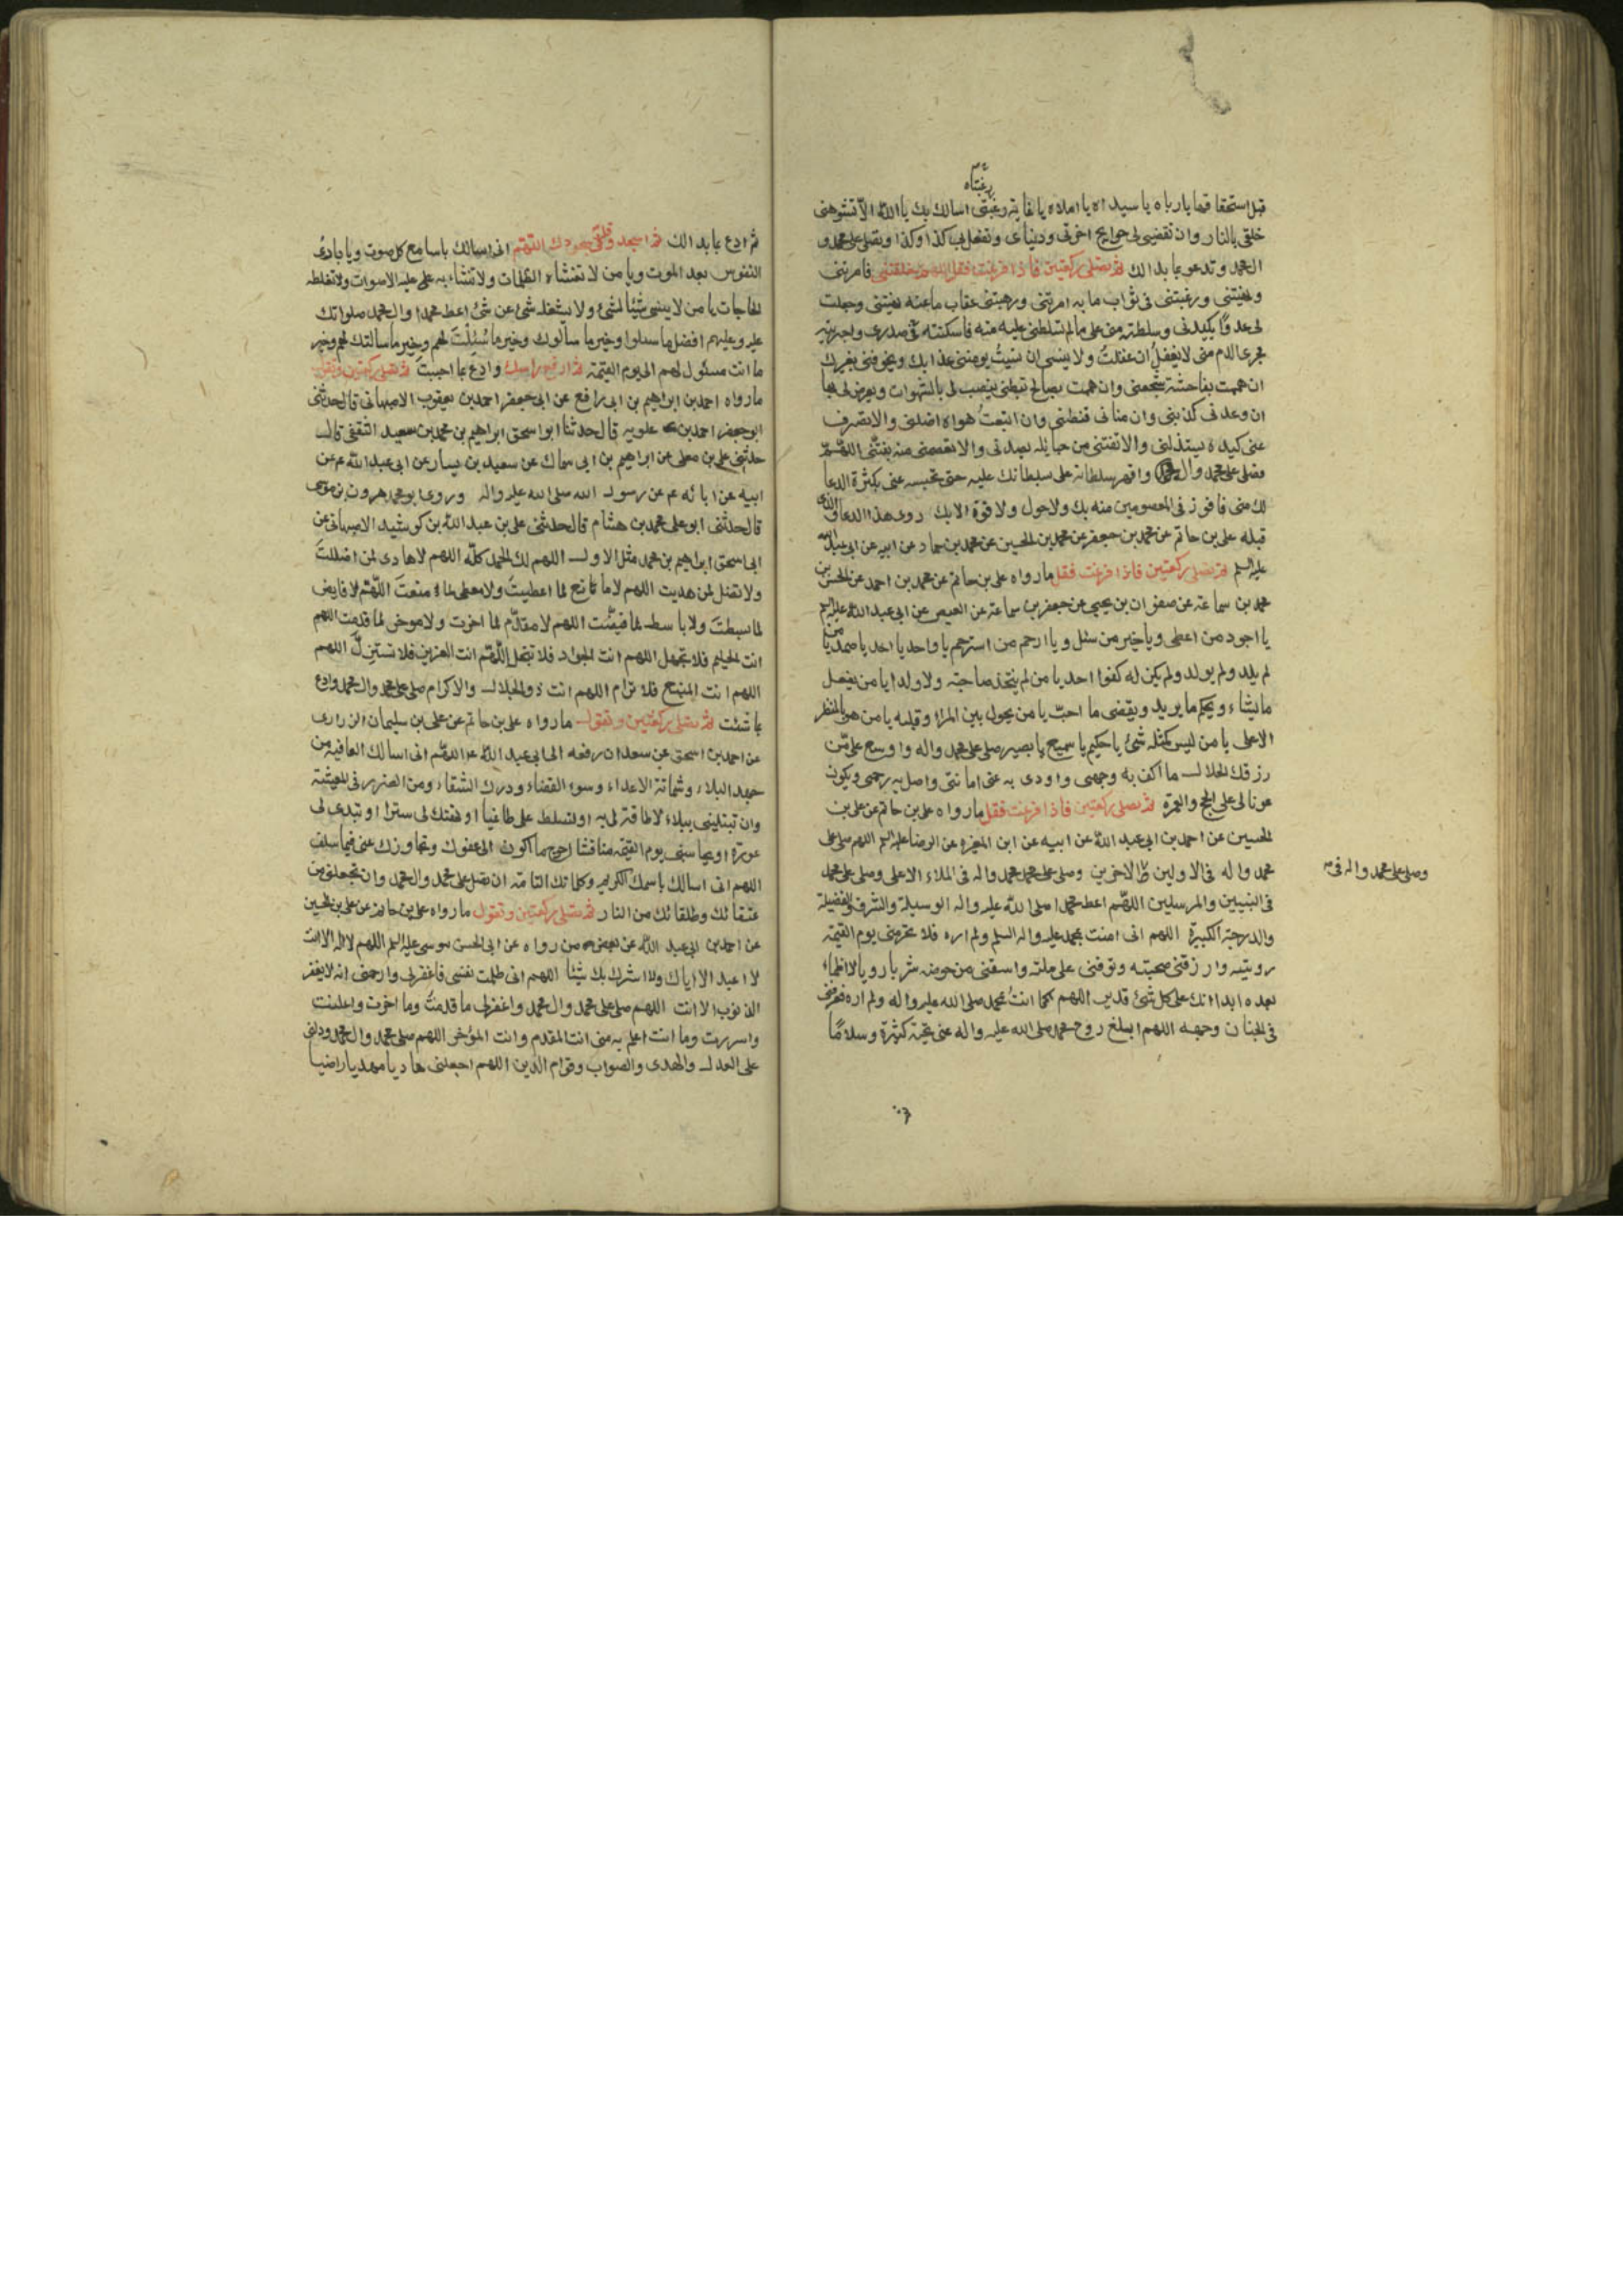 رغبتاه
قبل استحقاقها يا رباه يا سيداه يا املاه يا غاية رغبتى اسالك بك يا الله الا تشوه
خلقى بالنار وان تقضى لى حوايج اخرتى ودنياى وتفعل بى كذا وكذا وتصلى على محمد و
ال محمد وتدعو بما بدا لك ثم تصلى ركعتين فاذا فرغت فقل اللهم خلقتنى فامرتنى
ونهيتنى ورغبتنى فى ثواب ما به امرتنى ورهبتنى عقاب ما عنه نهيتنى وجعلت
لى عدوًا يكيدنى وسلطته منى على ما لم تسلطنى عليه منه فاسكنته فى صدرى واجريته
مجرى الدم منى لا يغفل ان غفلت ولا ينسى ان نسيت يومننى عذابك ويخوفنى بغيرك
ان هممت بفاحشة شجعنى وان هممت بصالح ثبطنى ينصب لى بالشهوات ويعرض لى بها
ان وعدنى كذبنى وان منانى قنطنى وان اتبعت هواه اضلنى والا تصرف
عنى كيده يستذلنى والا تفلتنى من حبائله يصدنى والا تعصمنى منه يفتنى اللهم
فصل على محمد وال محمد واقهر سلطانه على بسلطانك عليه حتى تحبسه عنى بكثرة الدعا
لك منى فافوز فى المعصومين منه بك ولا حول ولا قوة الا بك روى هذا الدعا والذى
قبله على بن حاتم عن محمد بن جعفر عن محمد بن الحسين عن محمد بن حماد عن ابيه عن ابى عبد الله
عليه السلم ثم تصلى ركعتين فاذا فرغت فقل ما رواه على بن حاتم عن محمد بن احمد عن الحسن بن
محمد بن سماعة عن صفوان بن يحيى عن جعفر بن سماعة عن العيص عن ابى عبد الله عليه السلم
يا اجود من اعطى ويا خير من سئل ويا ارحم من استرحم يا واحد يا احد يا صمد يا من
لم يلد ولم يولد ولم يكن له كفوا احد يا من لم يتخذ صاحبة ولا ولدا يا من يفعل
ما يشاء ويحكم ما يريد ويقضى ما احب يا من يحول بين المرا وقلبه يا من هو بالمنظر
الاعلى يا من ليس كمثله شئ يا حكيم يا سميع يا بصير صلى على محمد واله واوسع على من
رزقك الحلال ما اكف به وجهى واودى به عنى امانتى واصل به رحمى ويكون
عونا لى على الحج والعمرة ثم تصلى ركعتين فاذا فرغت فقل ما رواه على بن حاتم عن على بن
الحسين عن احمد بن ابى عبد الله عن ابيه عن ابن المغيره عن الرضا عليه السلم اللهم صل على
محمد واله فى الاولين والاخرين وصلى على محمد واله فى الملاء الاعلى وصلى على محمد
وصلى على محمد واله فى
فى النبيين والمرسلين اللهم اعط محمدا صلى الله عليه واله الوسيلة والشرف والفضيلة
والدرجة الكبيرة اللهم انى امنت بمحمد عليه واله السلم ولم اره فلا تحرمنى يوم القيمة
رويته وارزقنى صحبته وتوفنى على ملته واسقنى من حوضه شربا رويا لا اظماء
بعده ابدا انك على كل شئ قدير اللهم كما امنت بمحمد صلى الله عليه واله ولم اره فعرفنى
فى الجنان وجهه اللهم ابلغ روح محمد صلى الله عليه واله عنى تحية كثيرة وسلامًا
ثم
ثم ادع بما بدا لك ثم اسجد وقل فى سجودك اللهم انى اسالك يا سامع كل صوت ويا بارئ
النفوس بعد الموت ويا من لا تغشاه الظلمات ولا تتشابه عليه الاصوات ولا تغلطه
الحاجات يا من لا ينسى شيئا لشئ ولا يشغله شئ عن شئ اعط محمدا وال محمد صلواتك
عليه وعليهم افضل ما سالوا وخير ما سالوك وخير ما سُئِلْتَ لهم وخير ما سالتك لهم وخير
ما انت مسئول لهم الى يوم القيمة ثم ارفع راسك وادع بما احببت ثم تصلى ركعتين وتقول
ما رواه احمد بن ابراهيم بن ابى رافع عن ابى جعفر احمد بن يعقوب الاصبهانى قال حدثنى
ابو جعفر احمد بن علويه قال حدثنا ابو اسحق ابراهيم بن محمد بن سعيد الثقفى قال
حدثنى على بن معلى عن ابراهيم بن ابى سماك عن سعيد بن يسار عن ابى عبد الله ع عن
ابيه عن ابائه ع عن رسول الله صلى الله عليه واله وروى ابو محمد هرون بن موسى
قال حدثنى ابو على محمد بن هشام قال حدثنى على بن عبد الله بن كوشيد الاصبهانى عن
ابى اسحق ابراهيم بن محمد مثل الاول اللهم لك الحمد كله اللهم لا هادى لمن اضللت
ولا تضل لمن هديت اللهم لا مانع لما اعطيت ولا معطى لما منعت اللهم لا قابض
لما بسطت ولا باسط لما قبضت اللهم لا مقدم لما اخرت ولا موخر لما قدمت اللهم
انت الحليم فلا تجهل اللهم انت الجواد فلا تبخل اللهم انت العزيز فلا تستذل اللهم
اللهم انت المنيع فلا ترام اللهم انت ذو الجلال والاكرام صلى على محمد وال محمد وادع
بما شئت ثم تصلى ركعتين وتقول ما رواه على بن حاتم عن على بن سليمان الزرارى
عن احمد بن اسحق عن سعدان رفعه الى ابى عبد الله ع اللهم انى اسالك العافية من
جهد البلاء وشماتة الاعداء وسوء القضاء ودرك الشقاء ومن الضرر فى المعيشة
وان تبتلينى ببلاء لا طاقة لى به او تسلط على طاغيا او تهتك لى سترا او تبدى لى
عورة او تحاسبنى يوم القيمة مناقشا احوج ما اكون الى عفوك وتجاوزك عنى فيما سلف
اللهم انى اسالك باسمك الكريم وكلماتك التامة ان تصلى على محمد وال محمد وان تجعلنى من
عتقائك وطلقائك من النار ثم تصلى ركعتين وتقول ما رواه على بن حاتم عن على بن الحسين
عن احمد بن ابى عبد الله عن بعض من رواه عن ابى الحسن موسى عليه السلم اللهم لا اله الا انت
لا اعبد الا اياك ولا اشرك بك شيئا اللهم انى ظلمت نفسى فاغفر لى وارحمنى انه لا يغفر
الذنوب الا انت اللهم صلى على محمد وال محمد واغفر لى ما قدمت وما اخرت واعلنت
واسررت وما انت اعلم به منى انت المقدم وانت المؤخر اللهم صلى على محمد وال محمد ودلنى
على العدل والهدى والصواب وقوام الدين اللهم اجعلنى هاديا مهديا راضيا